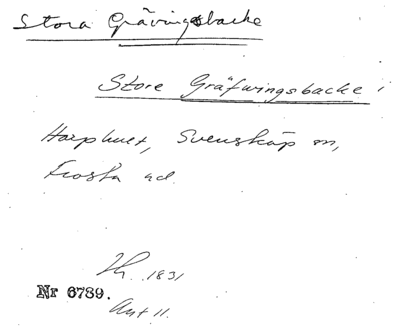 Stora Grävingsbacke
Store Gräfwingsbacke i
Harphult, Svensköp sn,
Frosta hd.
1831
Nr 6789.
Akt 11.